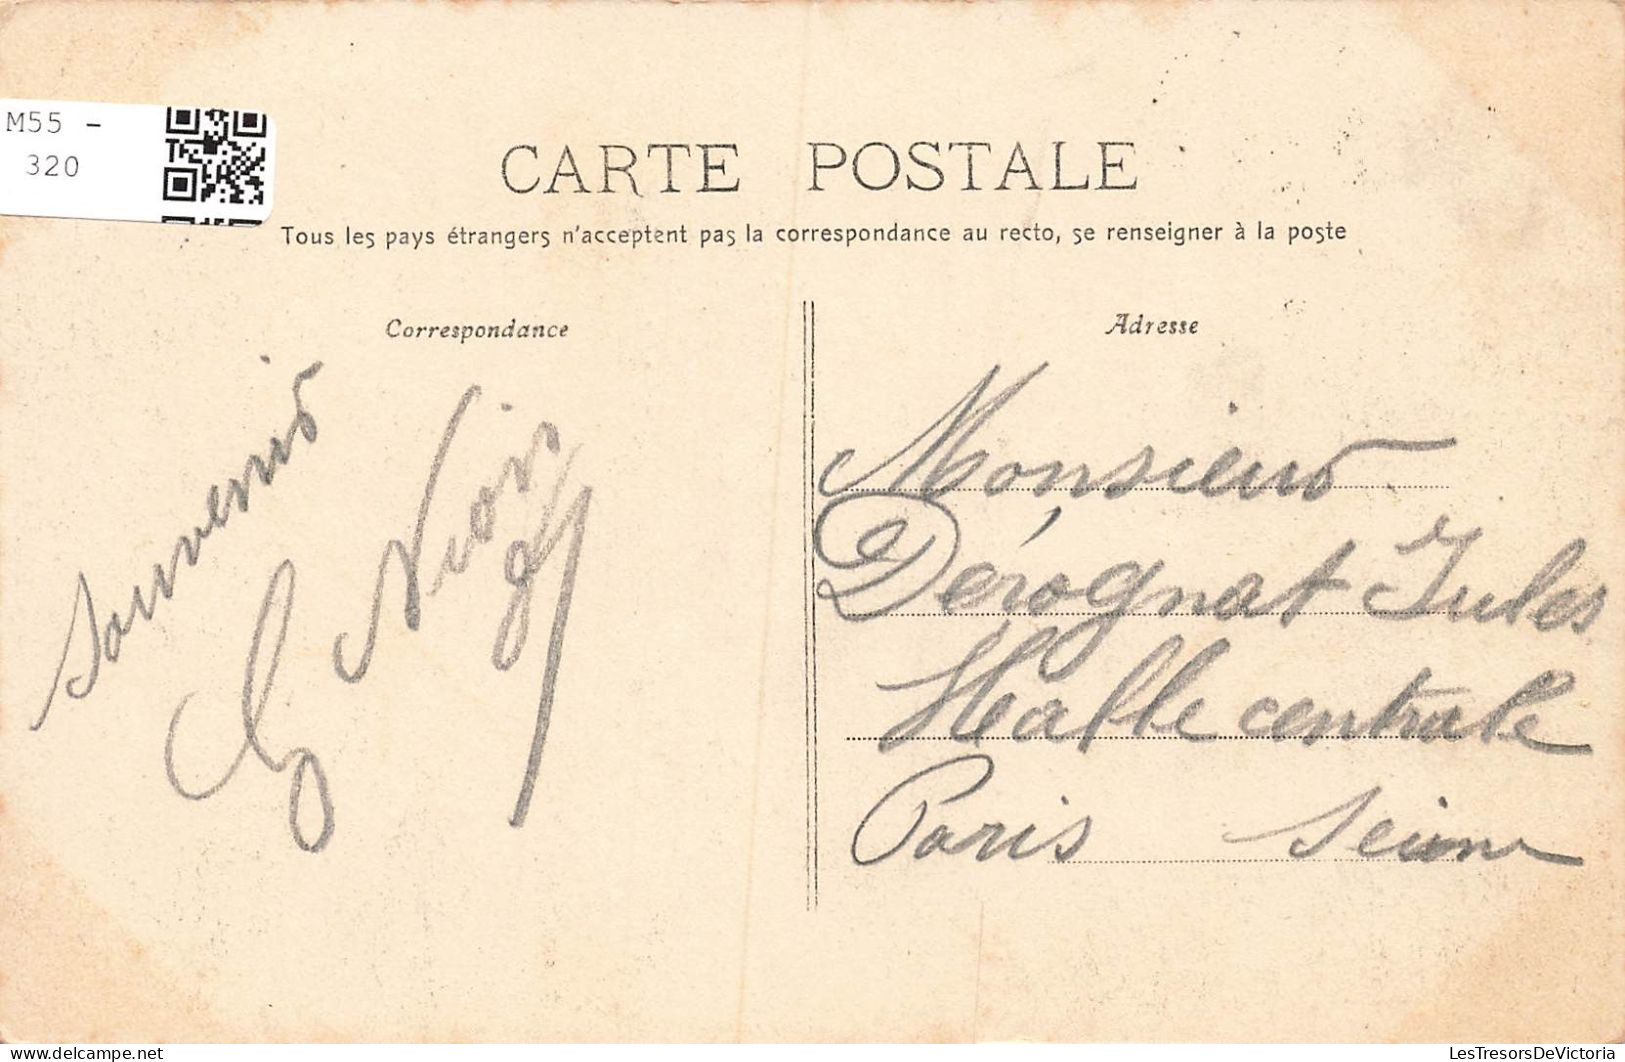 M55 -
320
CARTE POSTALE
Tous les pays étrangers n'acceptent pas la correspondance au recto, se renseigner à la poste
Correspondance
Adresse
Souvenir
Monsieur
Dérognat Jules
Halle centrale
Paris Seine
delcampe.net
LesTresorsDeVictoria